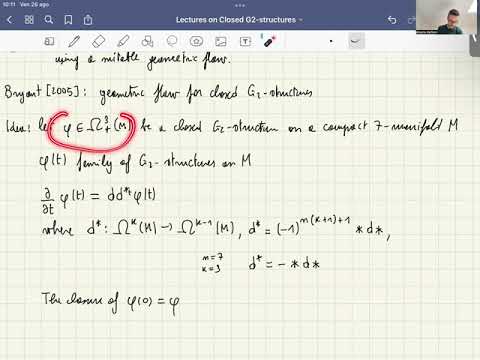 10:11 Ven 26 ago
Lectures on Closed G2-structures
using a suitable geometric flow.
Bryant [2005]: geometric flow for closed G₂-structures
Idea: let φ ∈ Ω³₊(M) be a closed G₂-structure on a compact 7-manifold M
φ(t) family of G₂-structures on M
∂/∂t φ(t) = dd*ᵗφ(t)
where d* : Ωᵏ(M) → Ωᵏ⁻¹(M), d* = (-1)ⁿ⁽ᵏ⁺¹⁾⁺¹ * d *,
n=7
k=3 d* = - * d *
The closure of φ(0) = φ